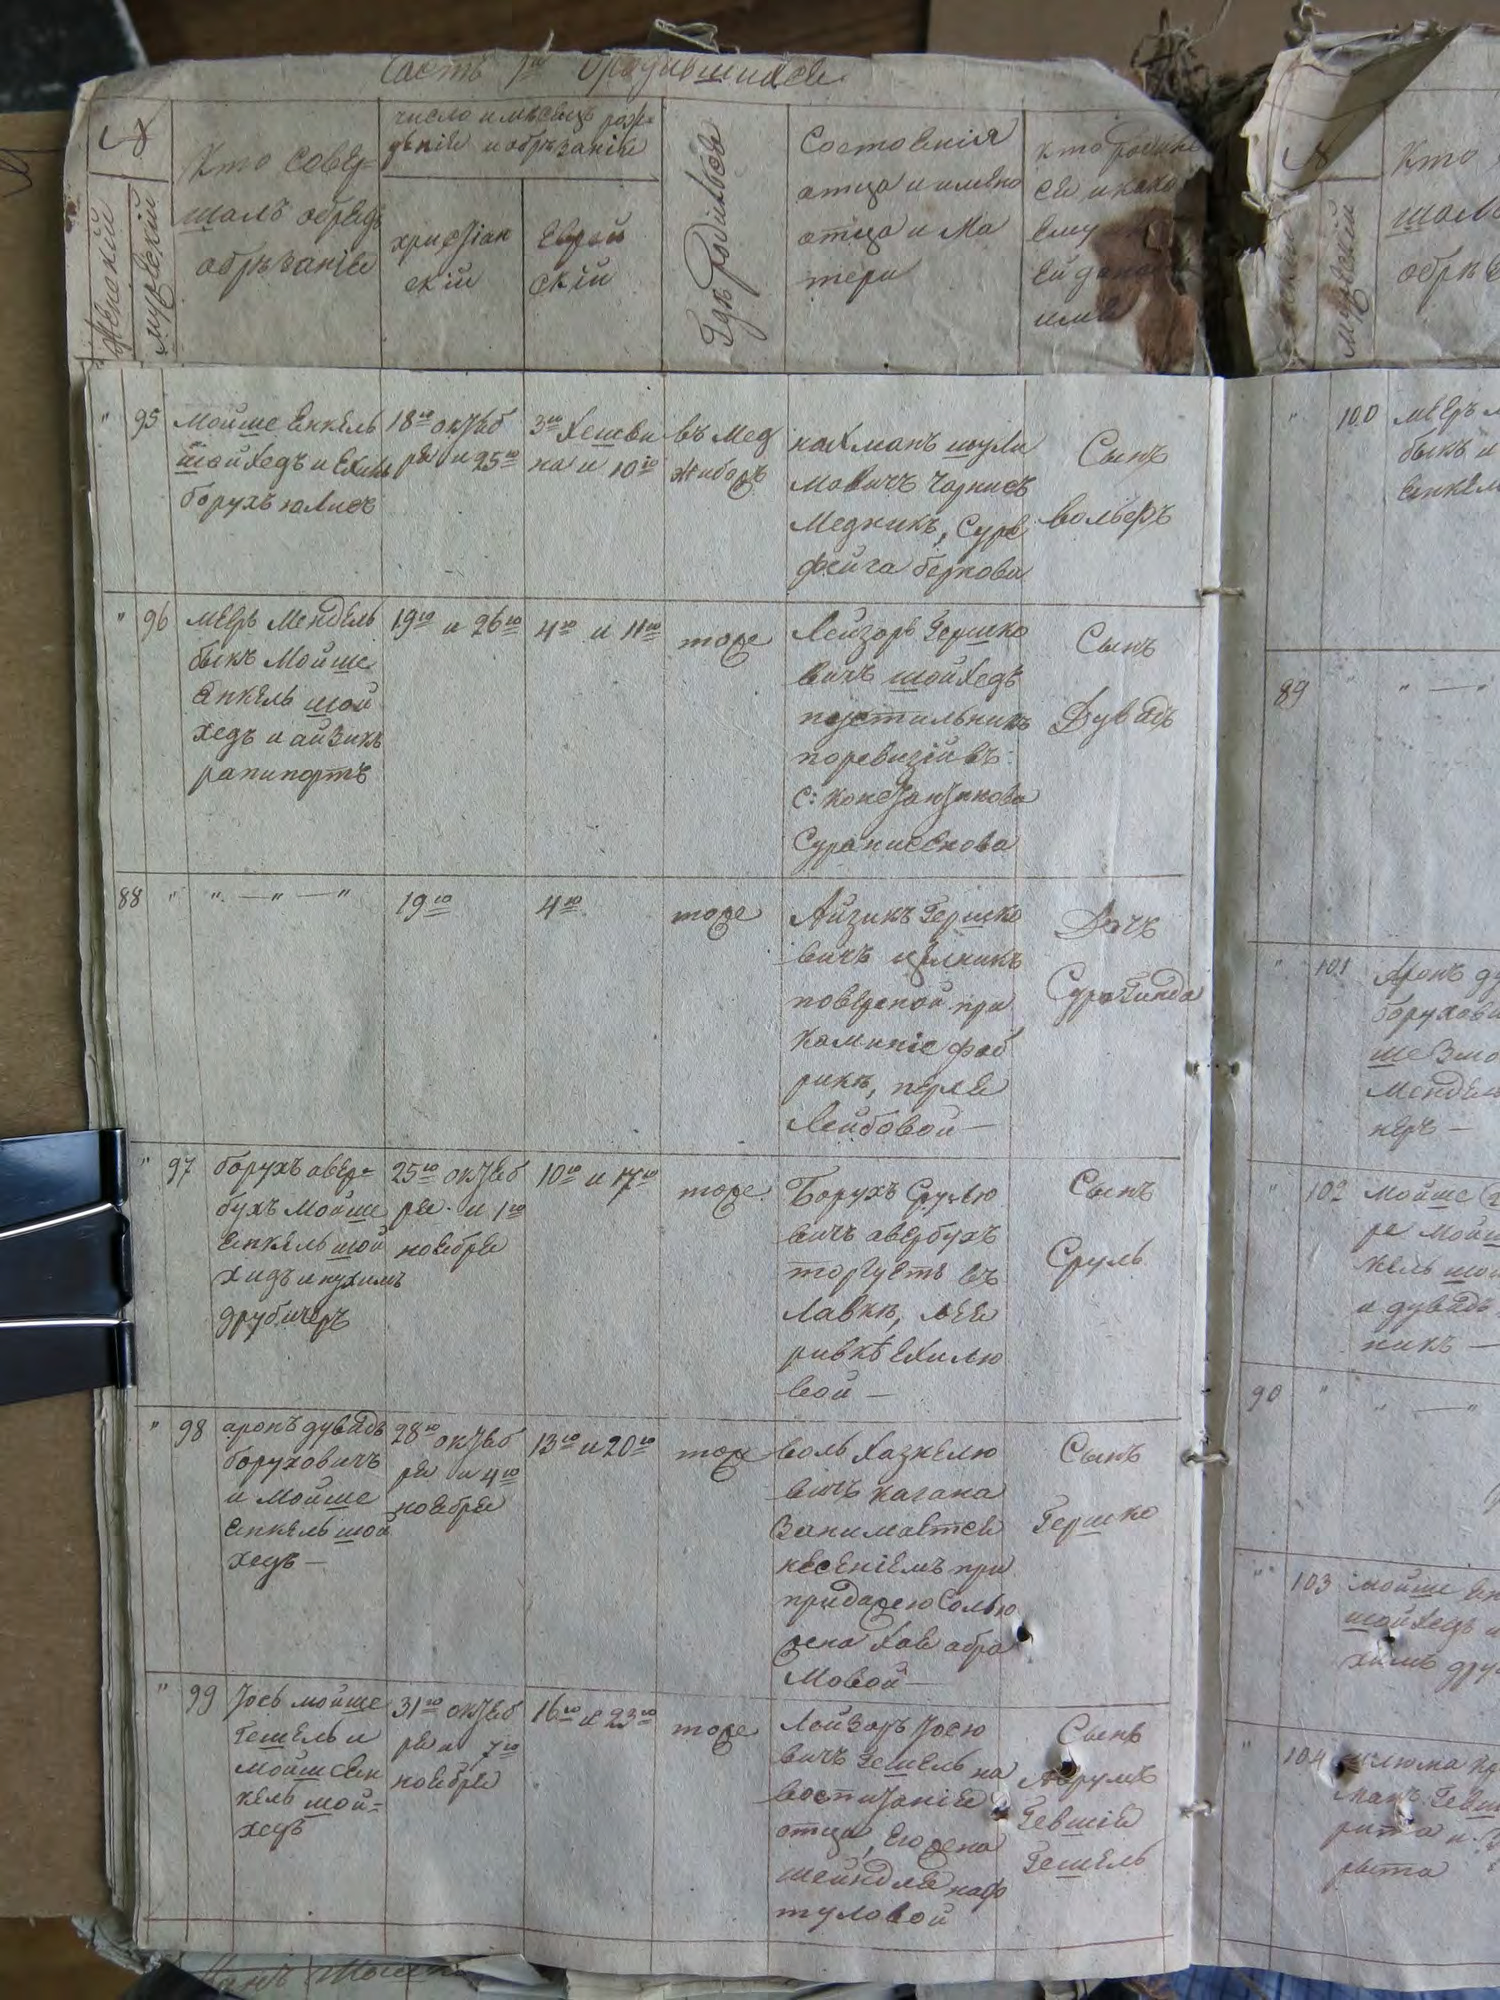 Часть 1я о родившихся
№
Женский
мужской
Кто совер-
шалъ обрядъ
обрѣзанія
число и мѣсяцъ рож-
денія и обрѣзанія
христіан
скій
Еврей
скій
Гдѣ родился
Состоянія
отца и имяна
отца и Ма
тери
кто родил
ся и како
Ему
Ей дано
имя
" 95
Мойше Енкель
шойхедъ и Ехиль
борухъ юлисъ
18го октяб
ря и 25го
3го Хешви
на и 10го
въ Мед
жибожѣ
нахманъ шули
мовичъ Чорнисъ
Медникъ, Сура
фейга беркова
Сынъ
вольфъ
" 96
меръ Мендель
быкъ Мойше
Енкель шой
хедъ и айзикъ
рапипортъ
19го и 26го
4го и 11го
тоже
Лейзоръ Гершко
вичъ шойхедъ
постильникъ
поревизій въ
С: Константинова
Сура нисенова
Сынъ
Дувидъ
88 " " — " — "
19го
4го
тоже
Айзикъ Гершко
вичъ
повереной при
фаб
рикѣ, перля
Лейбовой —
Дочь
Сура Гинда
" 97
борухъ авер-
бухъ Мойше
Енкель шой
хидъ и нухимъ
друбичеръ
25го октяб
ря и 1го
ноября
10го и 17го
тоже
Борухъ Срулю
вичъ авербухъ
торгуетъ въ
Лавкѣ,
ривкѣ Ехилю
вой —
Сынъ
Сруль
" 98
аронъ дувидъ
боруховичъ
и Мойше
Енкель шой
хедъ —
28го октяб
ря и 4го
ноября
13го и 20го
тоже
воль Хазкелю
вичъ кагана
Занимается
при
продажею Солью
жена Хая абра
Мовой —
Сынъ
Гершко
" 99
Іось мойше
Гешель и
мойше Ен
кель шой-
хедъ
31го октяб
ря и 7го
ноября
16го и 23го
тоже
Лойзоръ Іосю
вичъ Гешель на
воспитаніи
отца, Его жена
шейндля наф
туловой
Сынъ
Аврумъ
Гевшія
Гешель
№
мужской
Кто
шалъ
обрѣ
" 100
меръ м
быкъ и
Енкель
89 " — "
" 101
Аронъ ду
борухови
ше
Мендель
неръ —
" 102
мойше
ре мойш
кель шой
и дувидъ
никъ —
90 " " — "
" 103
мойше Ен
шойхедъ и
химъ дру
" 104
шлюма
манъ Гевш
рыта